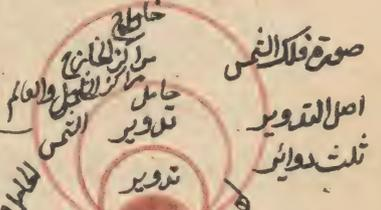 صورة فلك الشمس
اصل التدوير
ثلث دوائر
خارج
مراكز الخارج
مراكز الحامل والعالم
حامل
تدوير
الشمس
تدوير